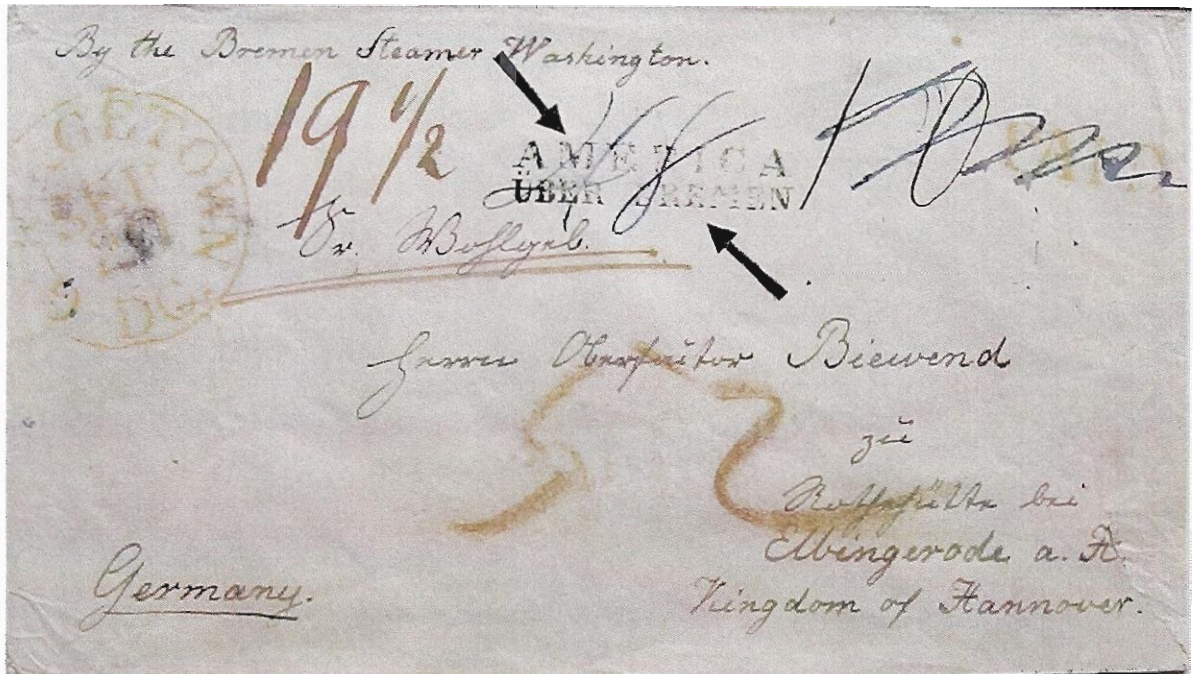 By the Bremen Steamer Washington.
GETOWN
D.C.
19 1/2
AMERICA
ÜBER BREMEN
PAID
Sr. Wohlgeb.
Herrn Oberfactor Biewend
zu
Rothehütte bei
Elbingerode a. H.
Kingdom of Hannover.
Germany.